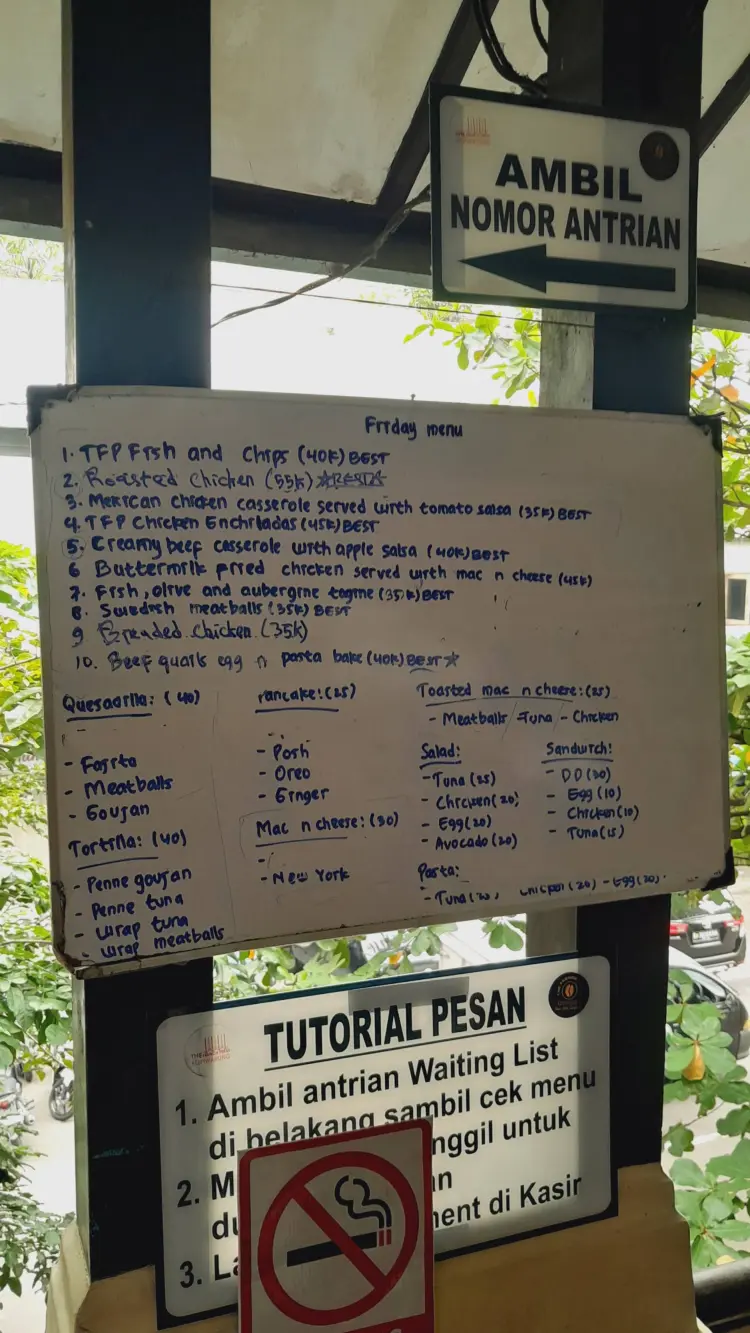 AMBIL
NOMOR ANTRIAN
Friday menu
1. TFP Fish and Chips (40K) BEST
2. Roasted Chicken (55K) ☆BEST☆
3. Mexican chicken casserole served with tomato salsa (35K) BEST
4. TFP Chicken Enchiladas (45K) BEST
5. Creamy beef casserole with apple salsa (40K) BEST
6 Buttermilk fried chicken served with mac n cheese (45K)
7. Fish, olive and aubergine tagine (35K) BEST
8. Swedish meatballs (35K) BEST
9 Breaded Chicken (35K)
10. Beef quails egg n pasta bake (40K) BEST ☆
Quesadilla: (40)
- Fajita
- Meatballs
- Goujan
Tortilla: (40)
- Penne goujan
- Penne tuna
- Wrap tuna
- Wrap meatballs
Pancake: (25)
- Posh
- Oreo
- Ginger
Mac n cheese: (30)
-
- New York
Toasted mac n cheese: (25)
- Meatballs - Tuna - Chicken
Salad:
- Tuna (25)
- Chicken (20)
- Egg (20)
- Avocado (20)
Sandwich:
- DD (30)
- Egg (10)
- Chicken (10)
- Tuna (15)
Pasta:
- Tuna (20), Chicken (20) - Egg (20).
TUTORIAL PESAN
1. Ambil antrian Waiting List
di belakang sambil cek menu
2. M nggil untuk
du n
ment di Kasir
3. La